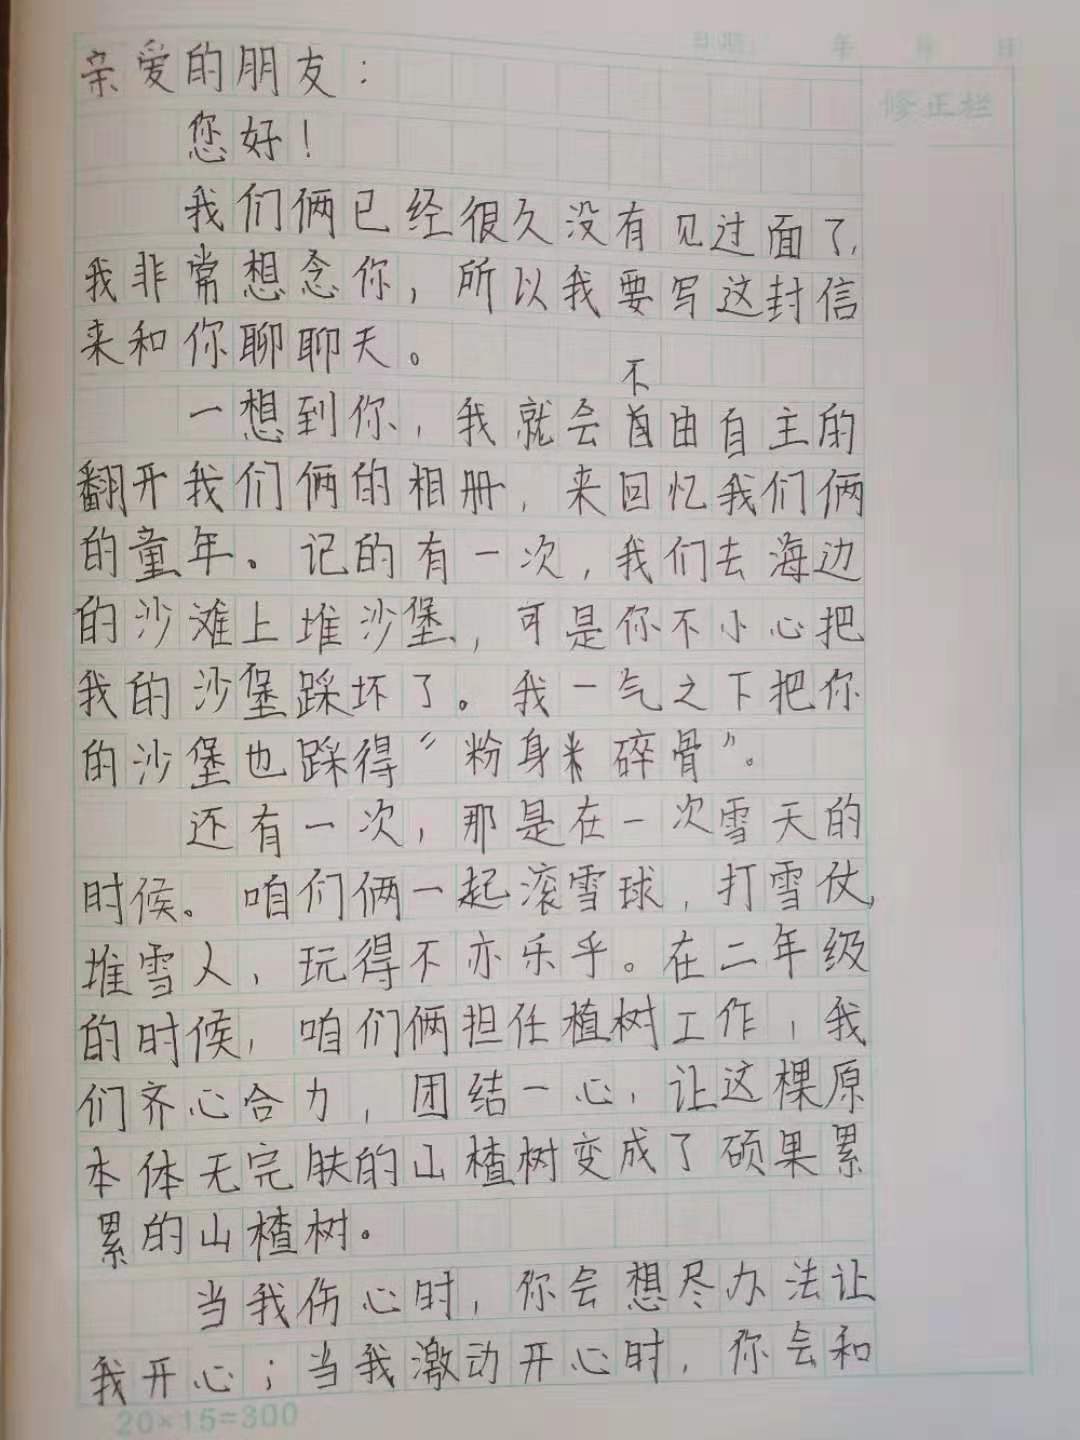 日期： 年 月 日
修正栏
亲爱的朋友：
您好！
我们俩已经很久没有见过面了，
我非常想念你，所以我要写这封信
来和你聊聊天。
不
一想到你，我就会自由自主的
翻开我们俩的相册，来回忆我们俩
的童年。记的有一次，我们去海边
的沙滩上堆沙堡，可是你不小心把
我的沙堡踩坏了。我一气之下把你
的沙堡也踩得“粉身碎骨”。
还有一次，那是在一次雪天的
时候。咱们俩一起滚雪球，打雪仗，
堆雪人，玩得不亦乐乎。在二年级
的时候，咱们俩担任植树工作，我
们齐心合力，团结一心，让这棵原
本体无完肤的山楂树变成了硕果累
累的山楂树。
当我伤心时，你会想尽办法让
我开心；当我激动开心时，你会和
20×15=300